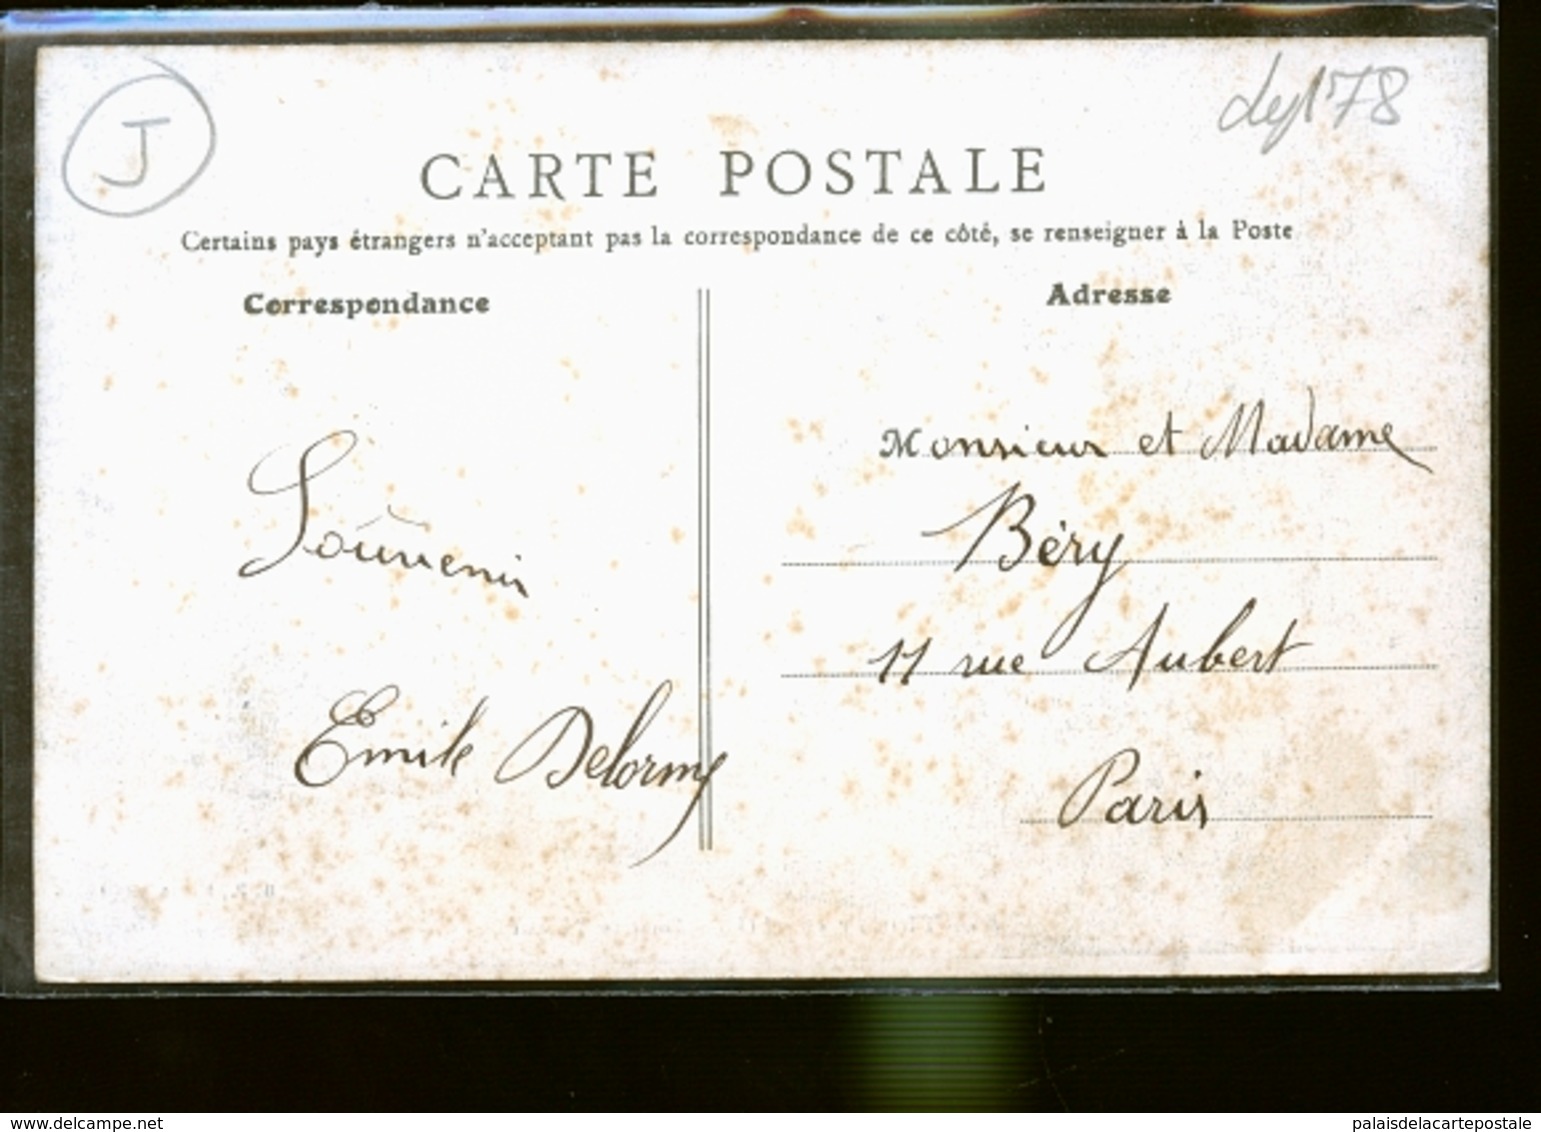 J
dep 78
CARTE POSTALE
Certains pays étrangers n'acceptant pas la correspondance de ce côté, se renseigner à la Poste
Correspondance
Adresse
Souvenir
Emile Delorme
Monsieur et Madame
Béry
11 rue Aubert
Paris
www.delcampe.net
palaisdelacartepostale